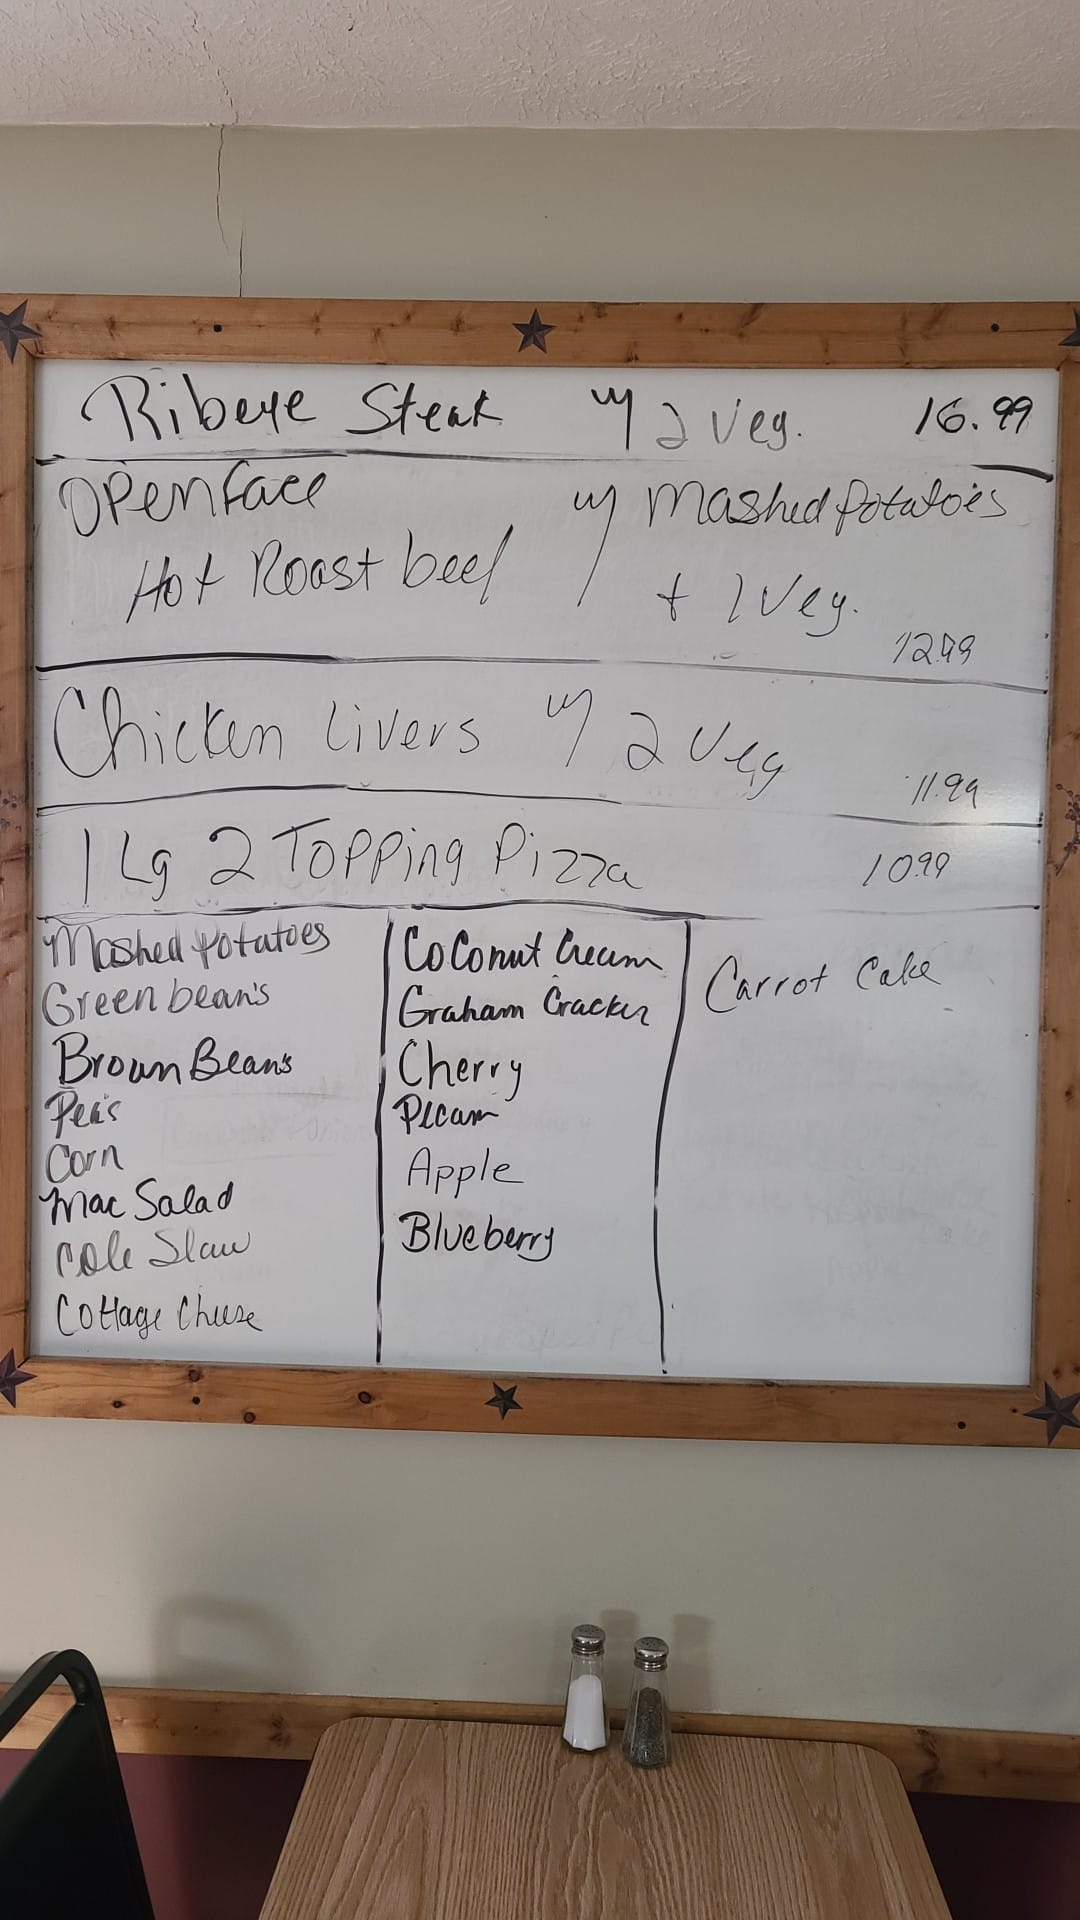 Ribeye Steak w/ 2 Veg. 16.99
Openface w/ Mashed potatoes
Hot Roast beef + 1 Veg.
12.99
Chicken Livers w/ 2 Veg
11.99
1 Lg 2 Topping Pizza 10.99
Mashed potatoes
Green bean's
Brown Bean's
Pea's
Corn
Mac Salad
Cole Slaw
Cottage Cheese
Coconut Cream
Graham Cracker
Cherry
Pecan
Apple
Blueberry
Carrot Cake